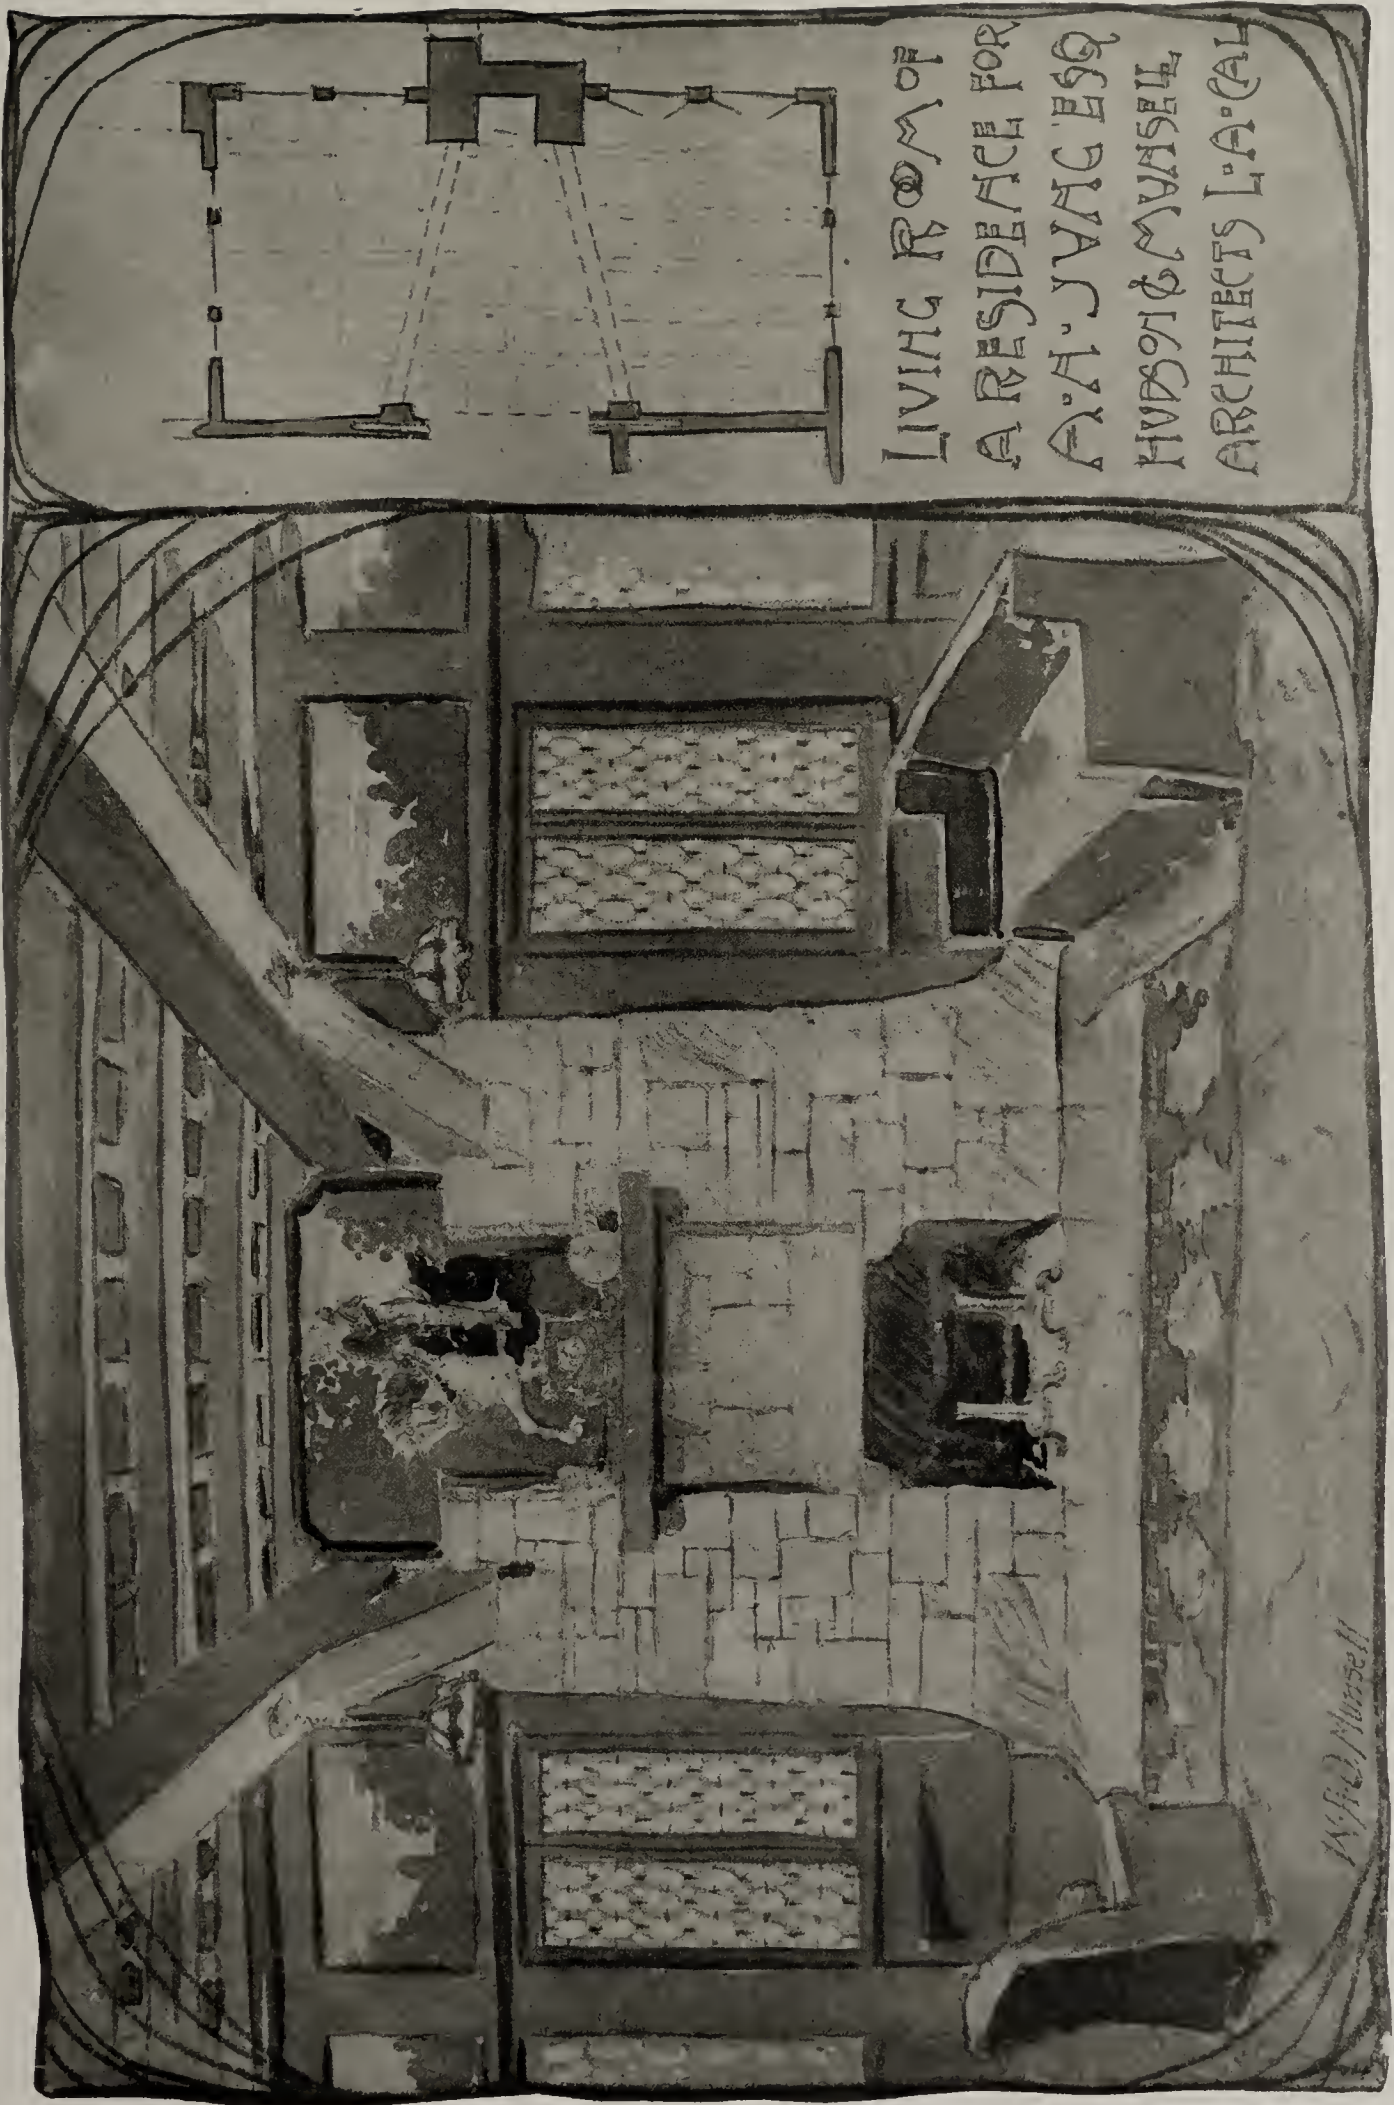 LIVING ROOM OF
A RESIDENCE FOR
A·A·JVNG ESQ
HVDSON & MVNSELL
ARCHITECTS L·A·CAL
Munsell